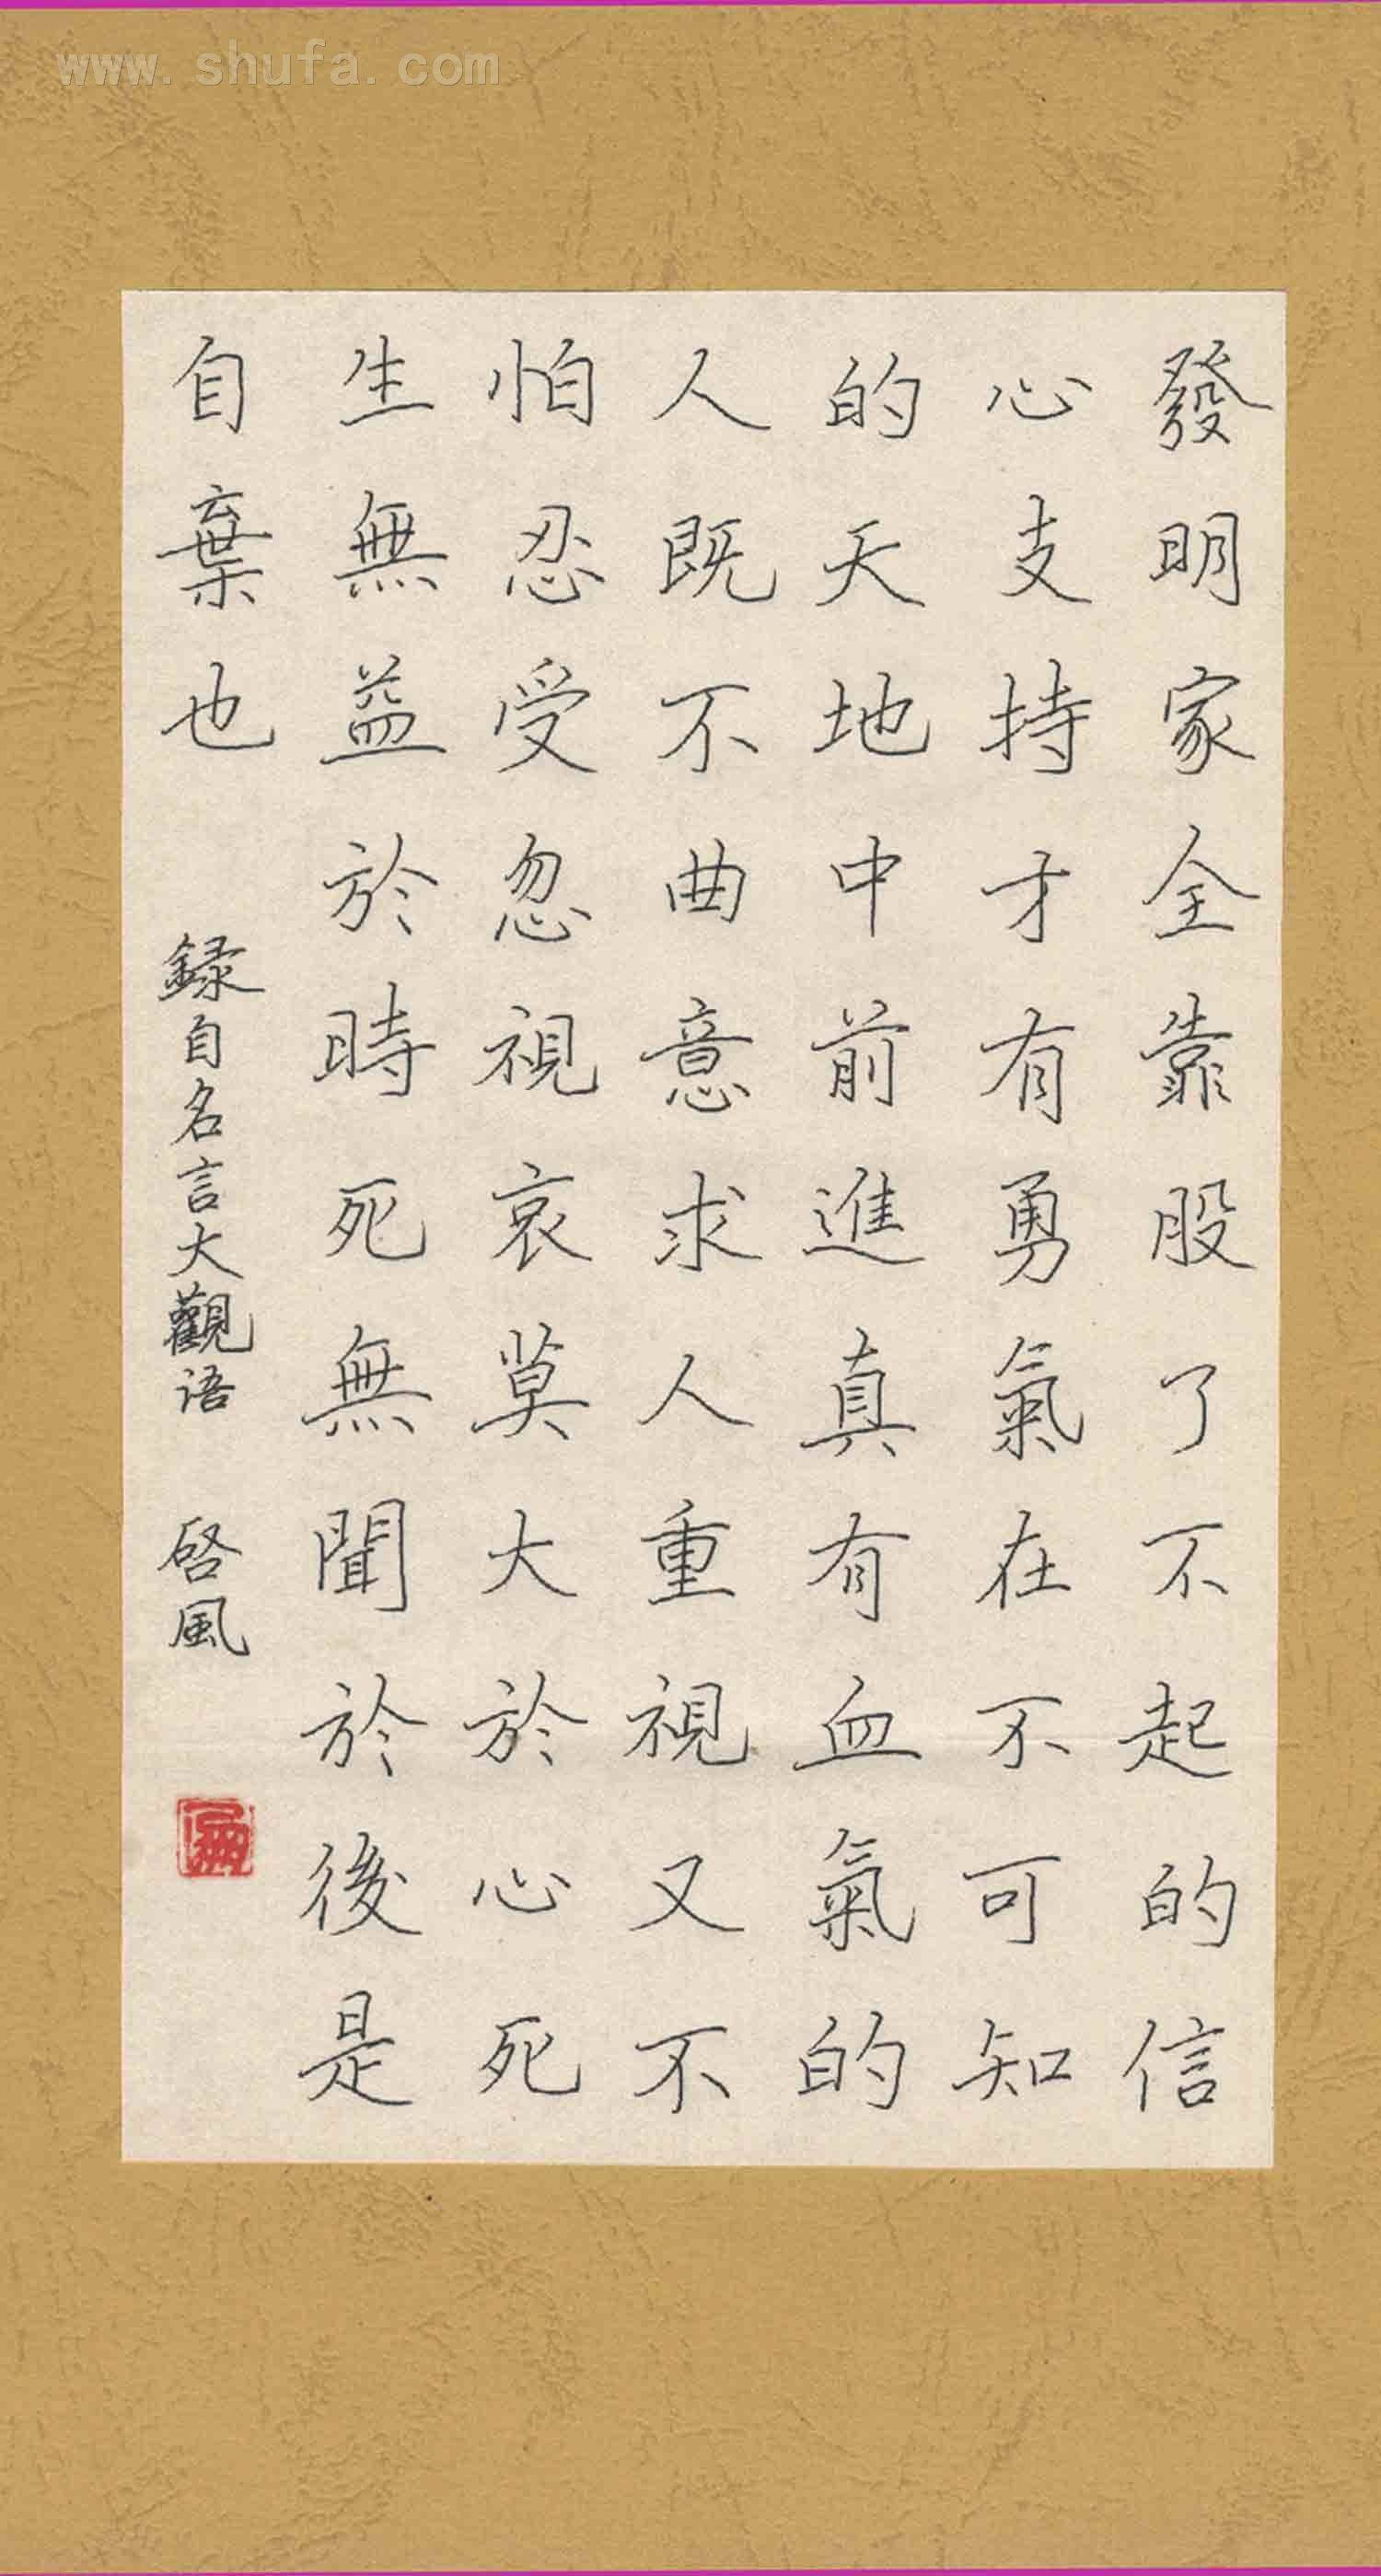 www.shufa.com
發明家全靠股了不起的信
心支持才有勇氣在不可知
的天地中前進真有血氣的
人既不曲意求人重視又不
怕忍受忽視哀莫大於心死
生無益於時死無聞於後是
自棄也
録自名言大觀语
啓風